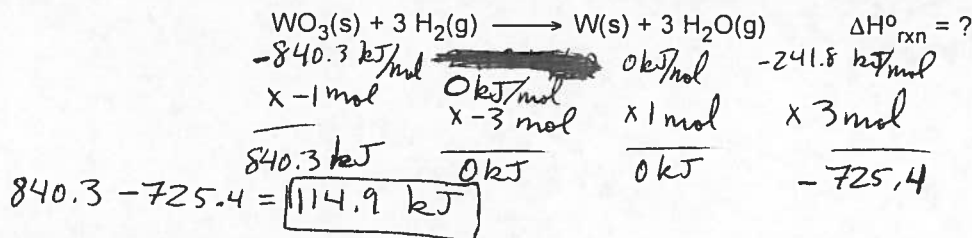 WO₃(s) + 3 H₂(g) ⟶ W(s) + 3 H₂O(g) ΔH°rxn = ?
-840.3 kJ/mol 0 kJ/mol -241.8 kJ/mol
0 kJ/mol
x -1 mol x -3 mol x 1 mol x 3 mol
840.3 kJ 0 kJ 0 kJ -725.4
840.3 - 725.4 = 114.9 kJ